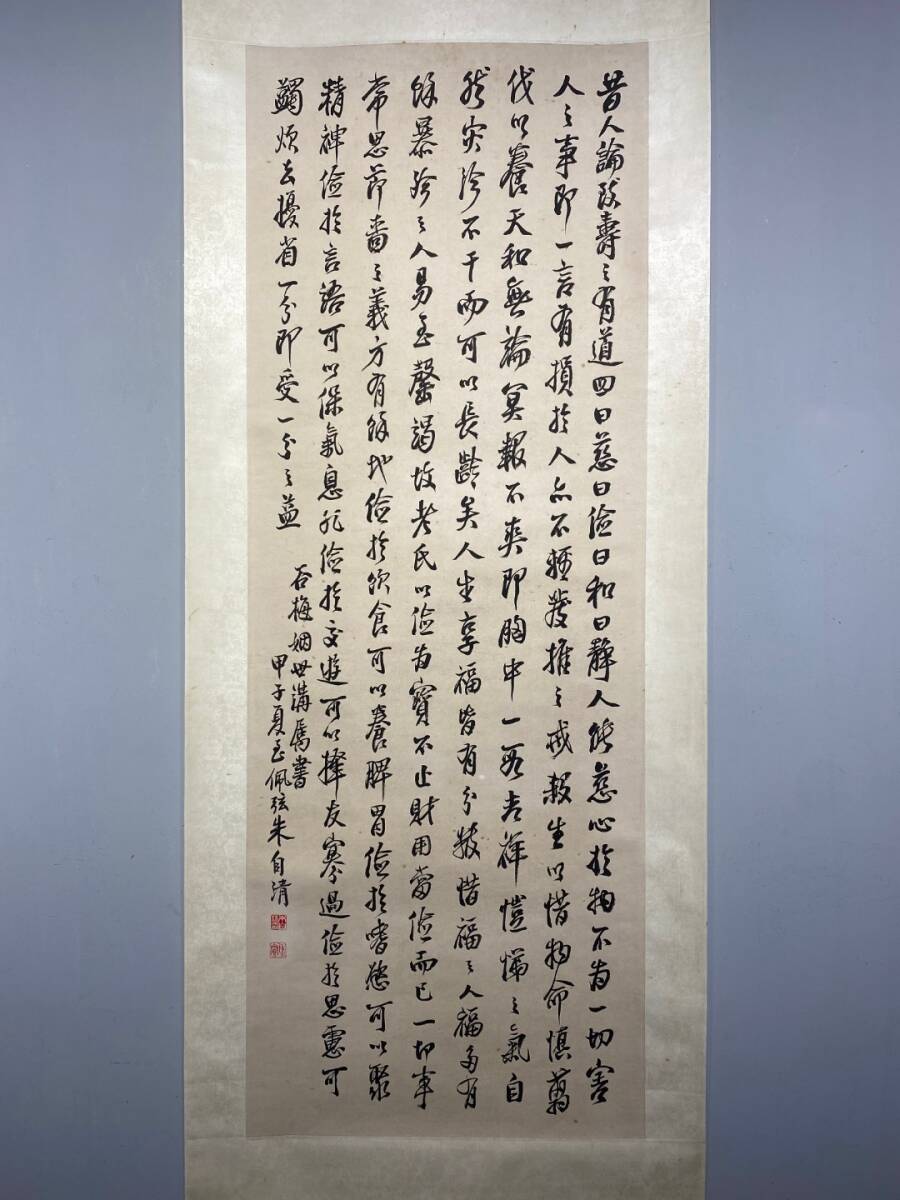 昔人論致壽之有道四曰慈曰儉曰和曰靜人能慈心於物不为一切害
人之事即一言有損於人亦不輕發推之戒殺生以惜物命慎翦
伐以養天和無論冥報不爽即胸中一段吉祥愷悌之氣自
然灾沴不干而可以長齡矣人生享福皆有分数惜福之人福多有
餘暴殄之人易至罄竭故老氏以儉为寶不止財用當儉而已一切事
常思節嗇之義方有餘地儉於飲食可以養脾胃儉於嗜慾可以聚
精神儉於言語可以保氣息非儉於交遊可以擇友寡過儉於思慮可
蠲烦去擾省一分即受一分之益
梅姻世講屬書
甲子夏至佩弦朱自清